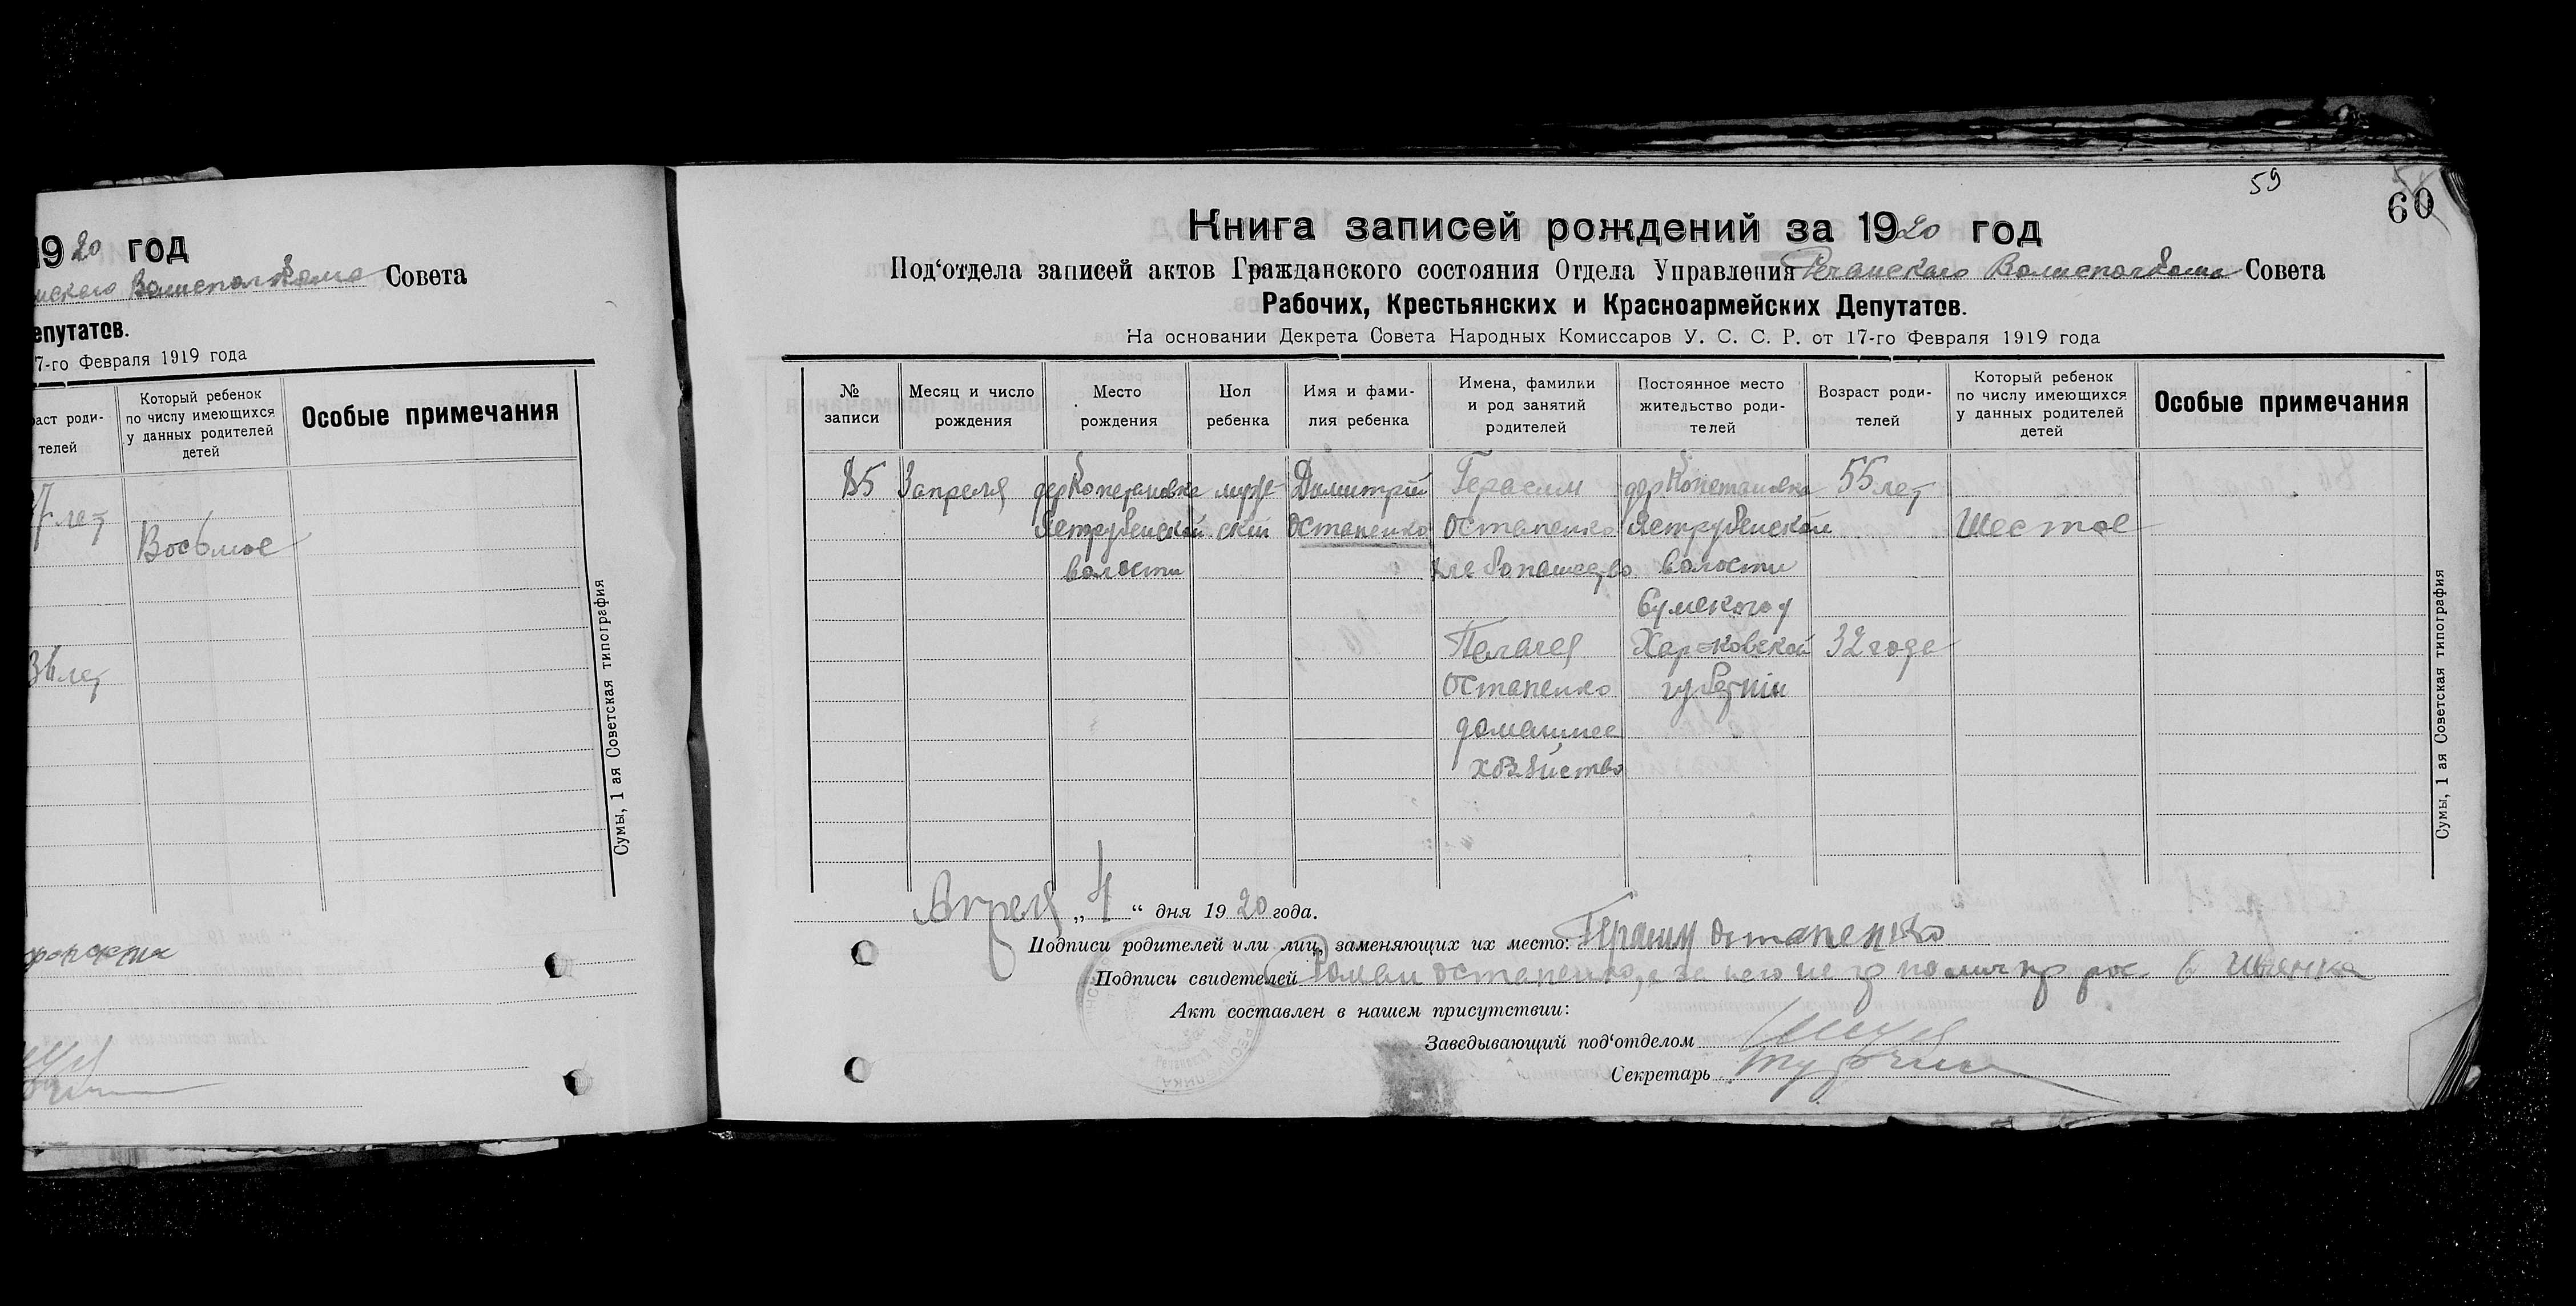 1920 год
Волисполкома Совета
епутатов.
7-го Февраля 1919 года
раст роди-
телей
Который ребенок
по числу имеющихся
у данных родителей
детей
Особые примечания
7 лет
Восьмое
36 лет
Сумы, 1 ая Советская типография
59
60
Книга записей рождений за 1920 год
Под‘отдела записей актов Гражданского состояния Отдела Управления Речанскаго Волисполкома Совета
Рабочих, Крестьянских и Красноармейских Депутатов.
На основании Декрета Совета Народных Комиссаров У. С. С. Р. от 17-го Февраля 1919 года
№
записи
Месяц и число
рождения
Место
рождения
Пол
ребенка
Имя и фами-
лия ребенка
Имена, фамилии
и род занятий
родителей
Постоянное место
жительство роди-
телей
Возраст роди-
телей
Который ребенок
по числу имеющихся
у данных родителей
детей
Особые примечания
85
3 апреля
дер
Яструбенской
волости
муже-
ский
Димитрий
Остапенко
Герасим
Остапенко
хлебопашество
Пелагея
Остапенко
домашнее
хозяйство
дер
Яструбенской
волости
Сумского у
Харьковской
губернии
55 лет
32 года
Шестое
Апреля „ 4 “ дня 1920 года.
Подписи родителей или лиц, заменяющих их место: Герасим Остапенко
Подписи свидетелей Роман Остапенко, а за него
Акт составлен в нашем присутствии:
Заведывающий под‘отделом
Секретарь
Сумы, 1 ая Советская типография